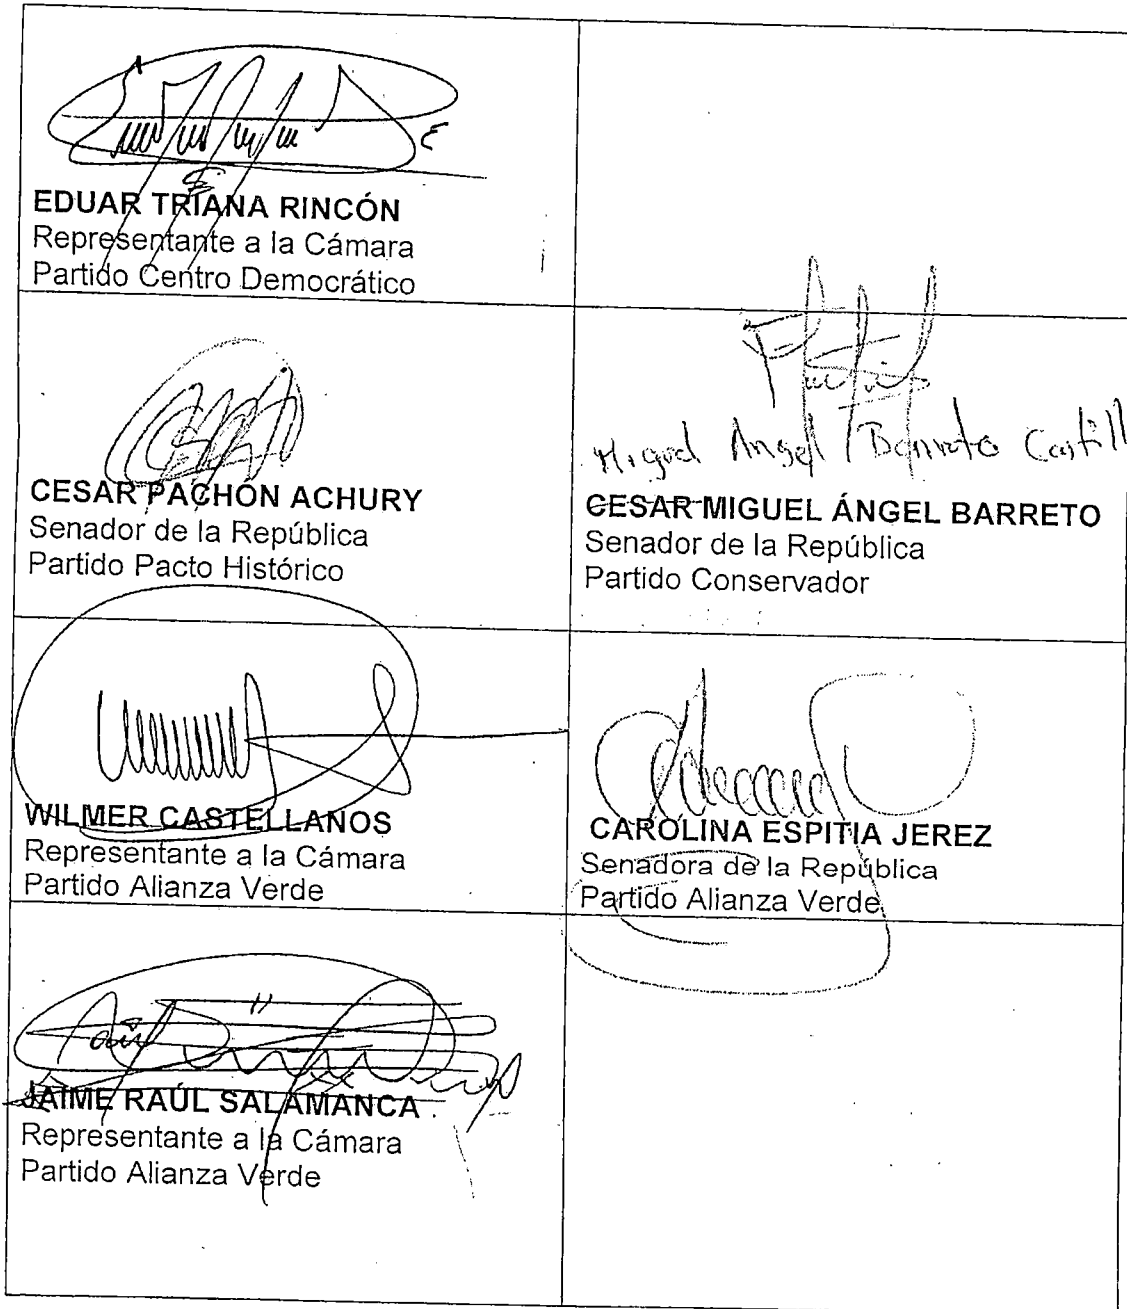 EDUAR TRIANA RINCÓN
Representante a la Cámara
Partido Centro Democrático
CESAR PACHÓN ACHURY
Senador de la República
Partido Pacto Histórico
Miguel Angel Barreto Castill
CESAR MIGUEL ÁNGEL BARRETO
Senador de la República
Partido Conservador
WILMER CASTELLANOS
Representante a la Cámara
Partido Alianza Verde
CAROLINA ESPITIA JEREZ
Senadora de la República
Partido Alianza Verde
JAIME RAÚL SALAMANCA
Representante a la Cámara
Partido Alianza Verde